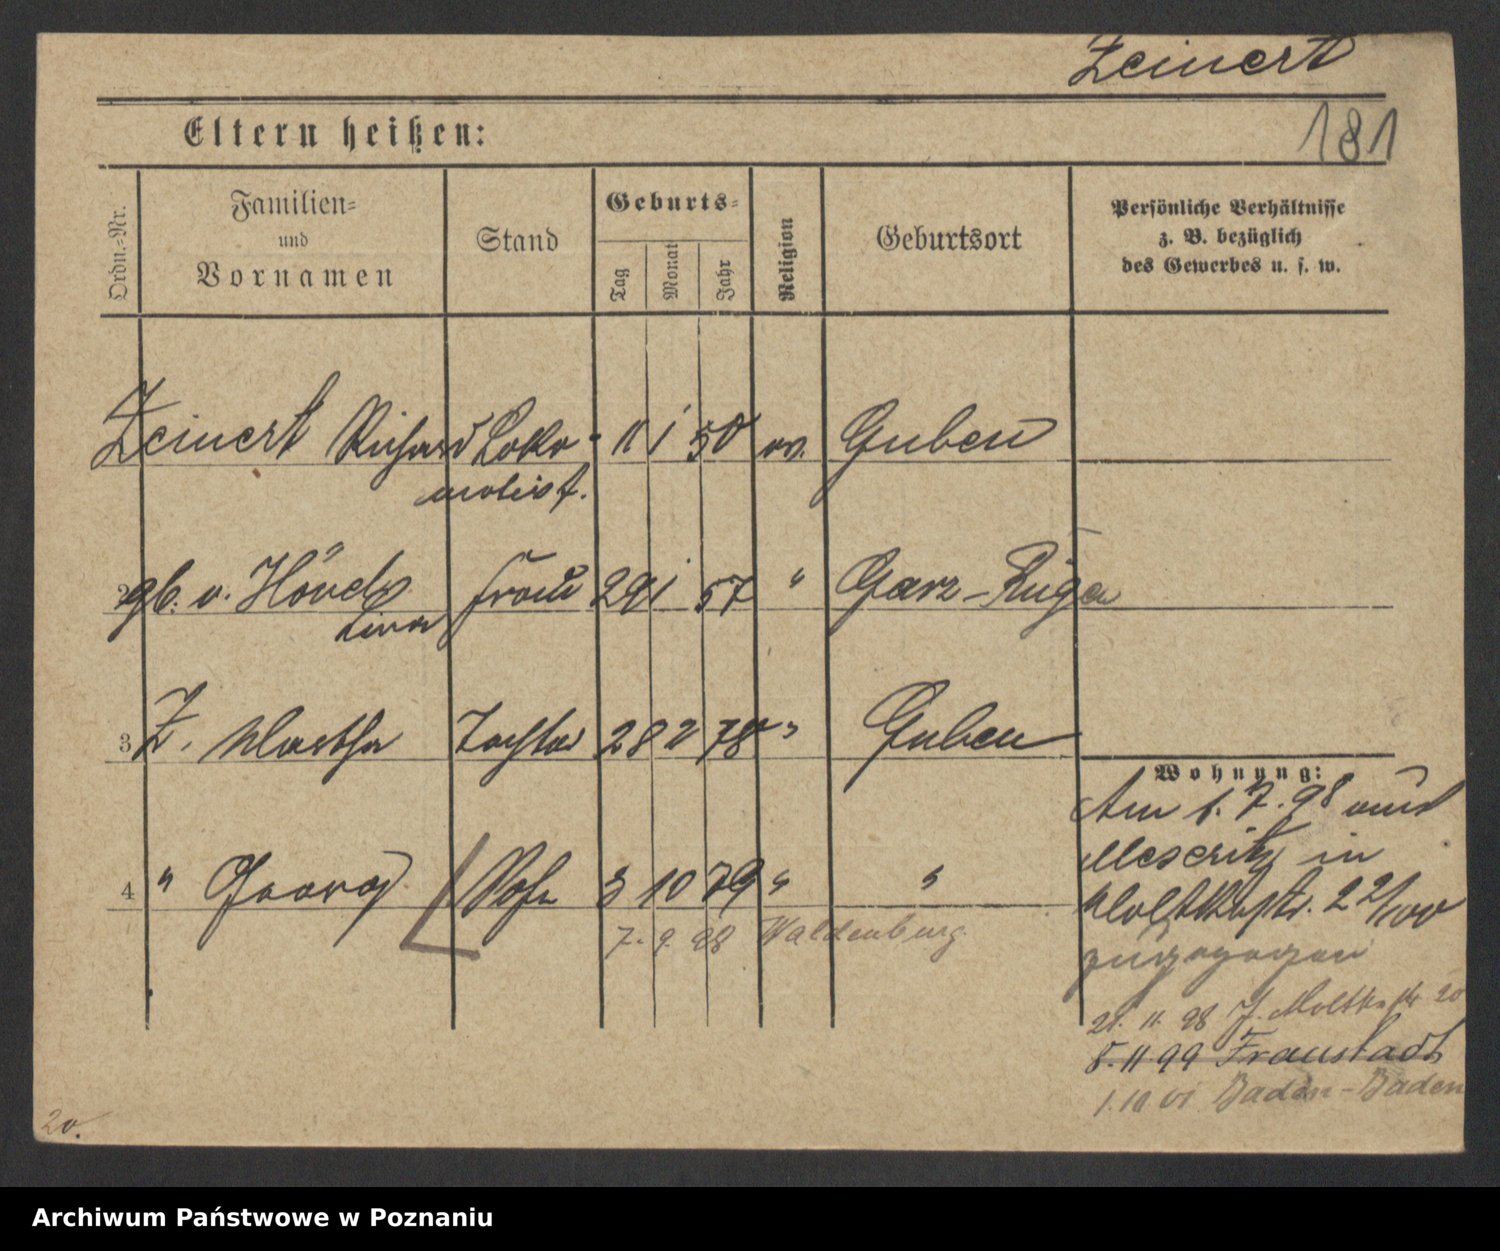 Zeinert
181
Eltern heißen:
Ordn.-Nr.
Familien-
und
Vornamen
Stand
Geburts-
Tag
Monat
Jahr
Religion
Geburtsort
Persönliche Verhältnisse
z. B. bezüglich
des Gewerbes u. s. w.
Zeinert Richard Loko- 11 1 50 ev. Guben
2 gb. v. Frau 29 1 57 " Garz-Rügen
3 Z. Martha Tochter 28 2 78 " Guben
Wohnung:
Am 1. 7. 98 aus
Meseritz in
4 " Georg Sohn 3 10 79 " "
Moltkestr. 22/100
7. 9. 98 Waldenburg
zugezogen
21. 11. 98 J. Moltkestr 20
5. 11 99 Fraustadt
1. 10 01 Baden-Baden
20.
Archiwum Państwowe w Poznaniu